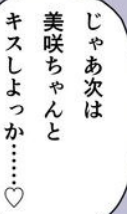 じゃあ次は
美咲ちゃんと
キスしよっか……♡